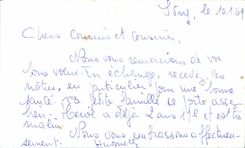 le 10.1.49
Chers cousins et cousines,
Nous vous remercions de vos
bons voeux. En échange, recevez les
nôtres, en particulier pour une bonne
santé. La petite famille se porte assez
bien. a déjà 2 ans 1/2 et est très
malin.
Nous vous embrassons affectueu-
sement.